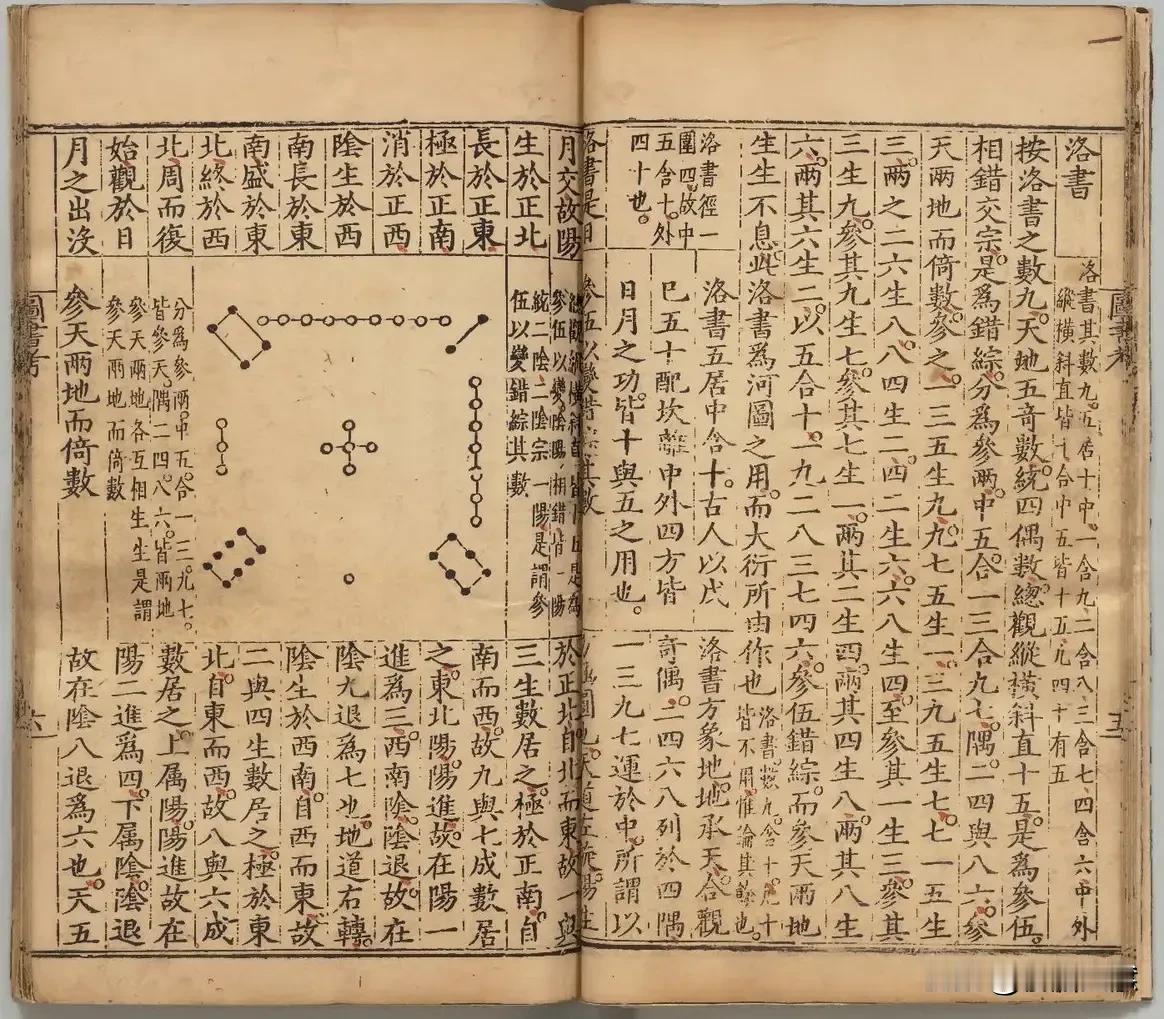 洛書
洛書其數九。五居十中。一含九二含八三含七四含六中外
縱橫斜直皆十合中五皆十五凡四十有五
按洛書之數九。天地五奇數。統四偶數。總觀縱橫斜直十五。是爲參伍。
相錯交宗。是爲錯綜。分爲參兩。中五。合一三合九七。隅。二四與八六。參
天兩地而倚數。參之。一三五生九。九七五生一。三九五生七。七一五生
三。兩之二六生八。八四生二。四二生六。六八生四。至參其一生三。參其
三生九。參其九生七。參其七生一。兩其二生四。兩其四生八。兩其八生
六。兩其六生二。以五合十。一九二八三七四六。參伍錯綜。而參天兩地
生生不息。此洛書爲河圖之用。而大衍所由作也
洛書數九。含十。凡十
皆不用。惟論其餘也
洛書徑一
圍四。故中
五含十。外
四十也。
洛書五居中含十。古人以戊
巳五十配坎離中外四方皆
日月之功。皆十與五之用也。
洛書方象地。地承天。合觀
奇偶。二四六八列於四隅
一三九七運於中。所謂以
圖書考
五
洛書是日
月交故陽
生於正北
長於正東
極於正南
消於正西
陰生於西
南長於東
南盛於東
北終於西
北周而復
始觀於日
月之出沒
參伍以變錯綜其數
總觀縱橫斜直皆十五是爲
參伍以變。陰陽相錯皆一陽
統二陰二陰宗一陽是謂參
伍以變錯綜其數
分爲參兩。中五。合一三。九七。
皆參天。隅二四八六。皆兩地
參天兩地各互相生是謂
參天兩地而倚數
參天兩地而倚數
天道左旋陽生
於正北自北而東故一與
三生數居之。極於正南。自
南而西。故九與七成數居
之。東北陽。陽進。故在陽一
進爲三。西南陰。陰退。故在
陰九退爲七也。地道右轉。
陰生於西南。自西而東。故
二與四生數居之。極於東
北。自東而西。故八與六成
數居之。上属陽。陽進故在
陽二進爲四。下属陰。陰退
故在陰八退爲六也。天五
圖書考
六